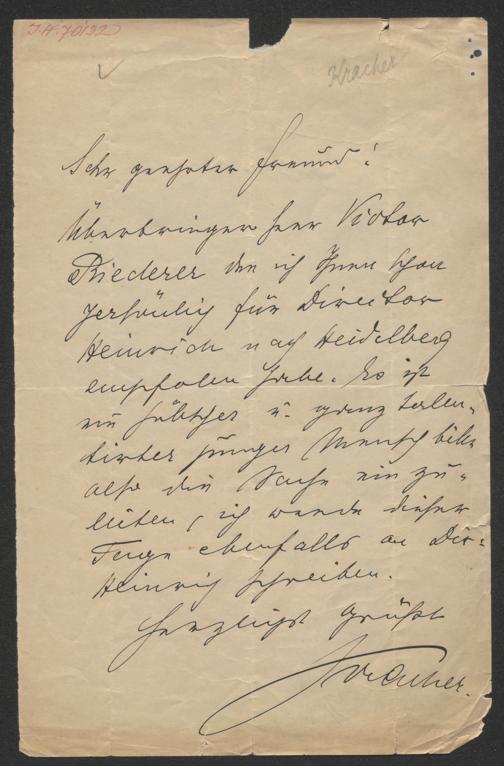 I.N. 70132
Kracher
Sehr geehrter Freund!
Überbringer Herr Victor
Riederer den ich Ihnen schon
persönlich für Director
Heinrich nach Heidelberg
empfolen habe. Es ist
ein hübscher u. ganz talen-
tirter junger Mensch bitte
also die Sache ein zu-
leiten, ich werde dieser
Tage ebenfalls an Dir:
Heinrich schreiben.
Herzlichst grüßt
Kracher.